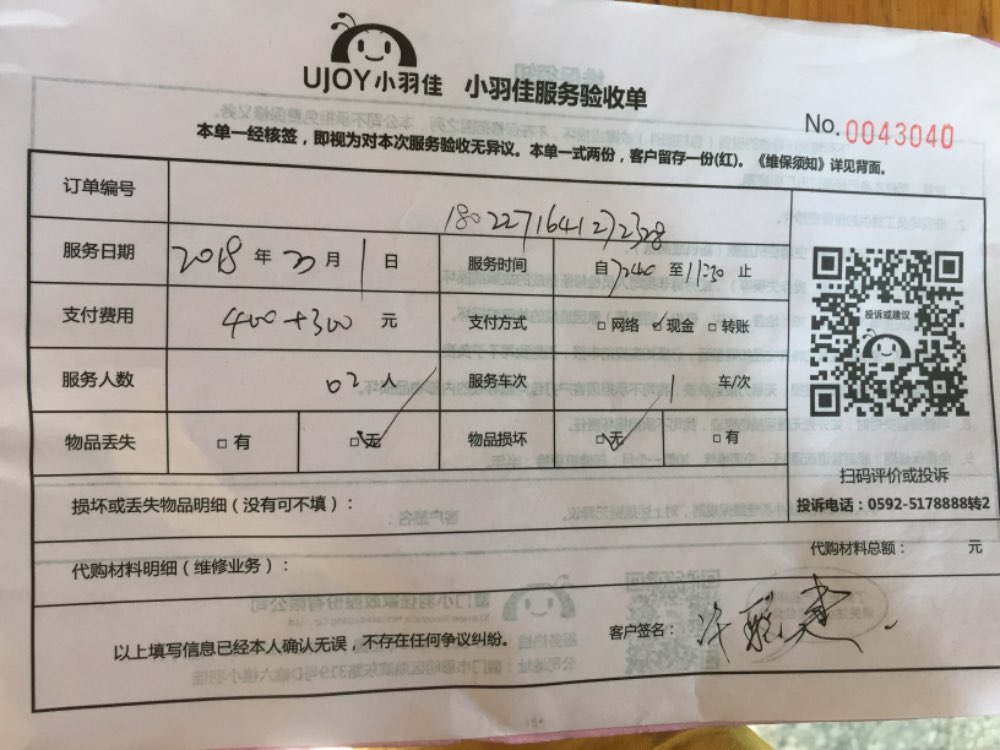 UJOY小羽佳 小羽佳服务验收单
No.0043040
本单一经核签，即视为对本次服务验收无异议。本单一式两份，客户留存一份(红)。《维保须知》详见背面。
订单编号 1802271641272328
服务日期 2018 年 月 1 日 服务时间 自 至 11:30 止
投诉或建议
支付费用 400+300 元 支付方式 □ 网络 ☑ 现金 □ 转账
服务人数 02 人 服务车次 1 车/次
物品丢失 □ 有 ☑ 无 物品损坏 ☑ 无 □ 有
扫码评价或投诉
投诉电话：0592-5178888转2
损坏或丢失物品明细（没有可不填）：
代购材料总额： 元
代购材料明细（维修业务）：
以上填写信息已经本人确认无误，不存在任何争议纠纷。 客户签名：